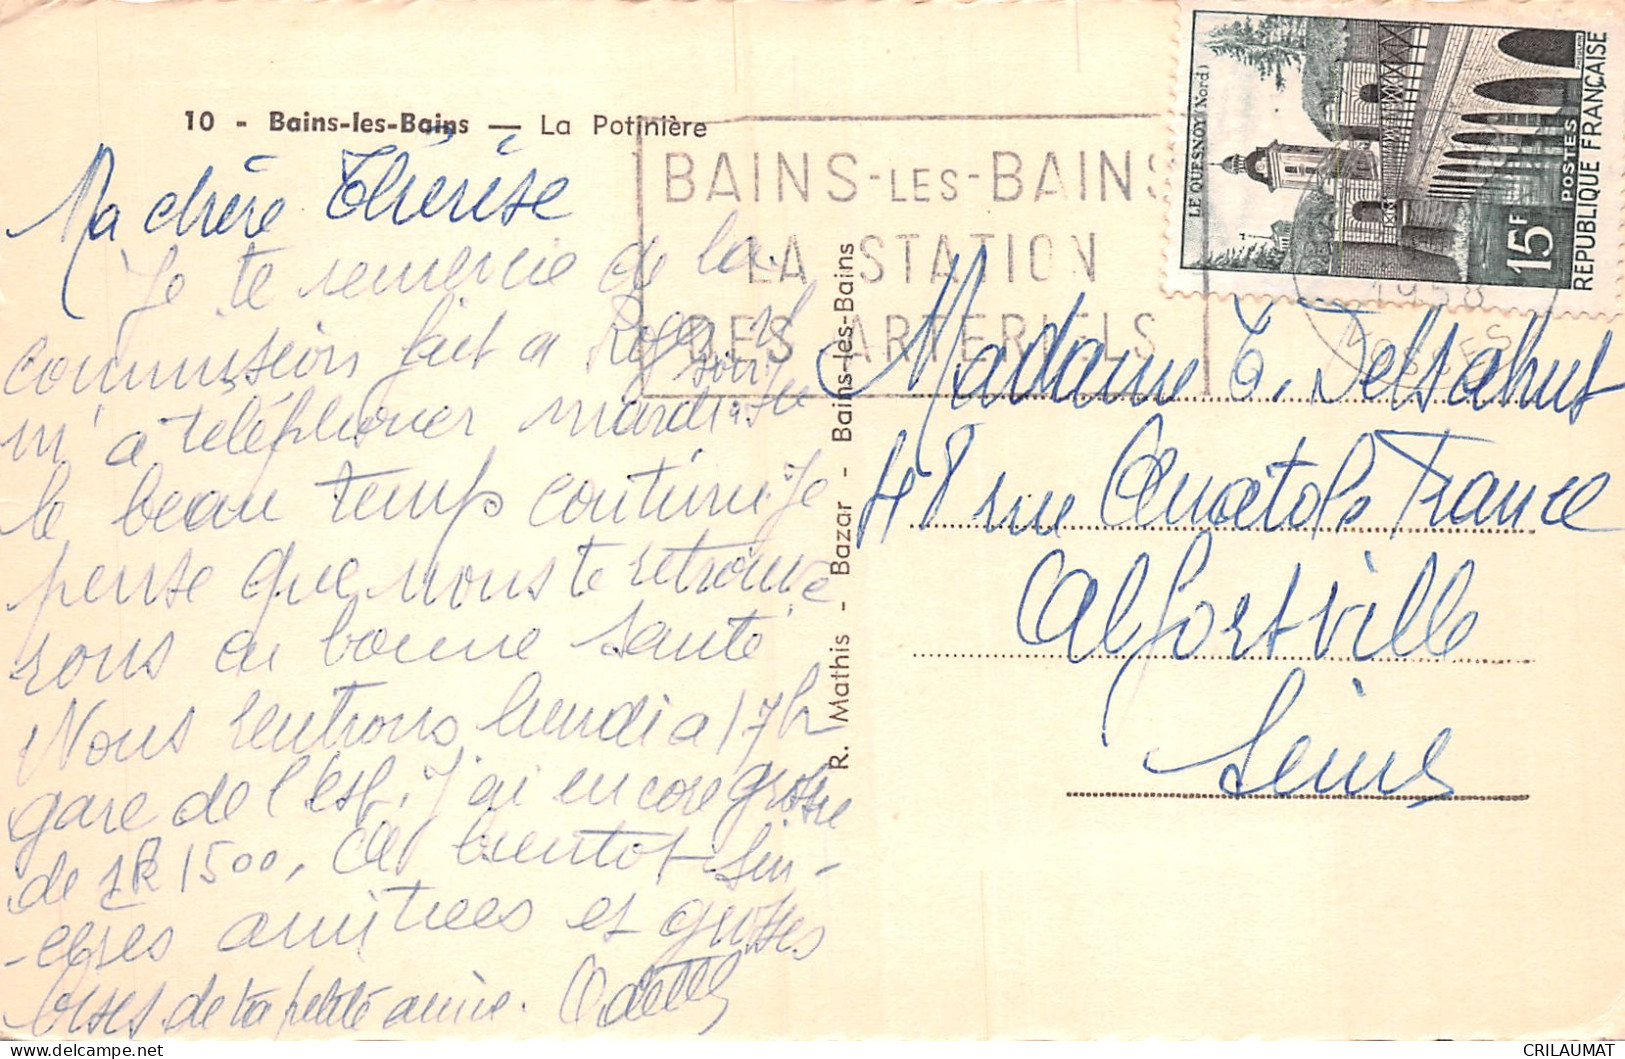 10 - Bains-les-Bains — La Potinière
Ma chère Thérèse
Je te remercie de la
commission fait a Roger il
m'a téléphoner mardi soir
le beau temps continu. Je
pense que nous te retrouve
rons en bonne santé
Nous rentrons lundi a 17h
gare de l'est. J'ai encore grossie
de 1K 1500, a bientot sin-
-cères amitiees et grosses
bises de ta petite amie. Odette
R. Mathis - Bazar - Bains-les-Bains
BAINS-LES-BAINS
LA STATION
DES ARTERIELS
1958
VOSGES
LE QUESNOY (Nord)
15F
POSTES
REPUBLIQUE FRANÇAISE
Madame T. Delsahut
48 rue Anatole France
Alfortville
Seine
CRILAUMAT